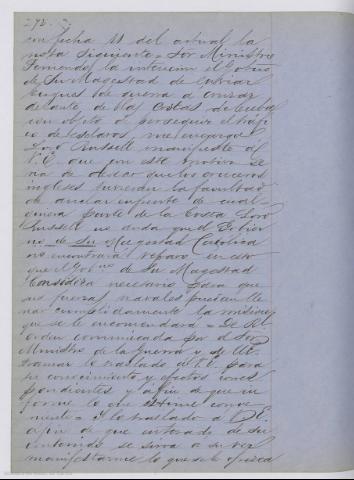 con fecha 11 del actual la
nota siguiente = Sor Ministro
Teniendo la intencion el Gobno
de Su Magestad de enviar
buques de guerra a cruzar
delante de las Costas de Cuba
con objeto de perseguir el tráfi
co de esclavos, me encarga
Lord Russell manifieste á
V.E. que con este motivo se
ria de desear que los cruceros
ingleses tuvieran la facultad
de anclar enfrente de cual
quiera parte de la Costa. Lord
Russell no duda que el Gobier
no de Su Magestad Catolica
no encontrará reparo en esto
que el Gobno de Su Magestad
Considera necesario para que
sus fuerzas navales puedan lle
nar cumplidamente la mision
que se le encomendara = De Rl
orden comunicada por el Sor
Ministro de la Guerra y de Ul
tramar lo traslado á V.E. para
su conocimiento y efectos corres
pondientes y á fin de que in
forme lo que estime conve
niente = Y lo traslado á V.E.
a fin de que enterado de su
contenido se sirva a su vez
manifestarme lo que se le ofrezca